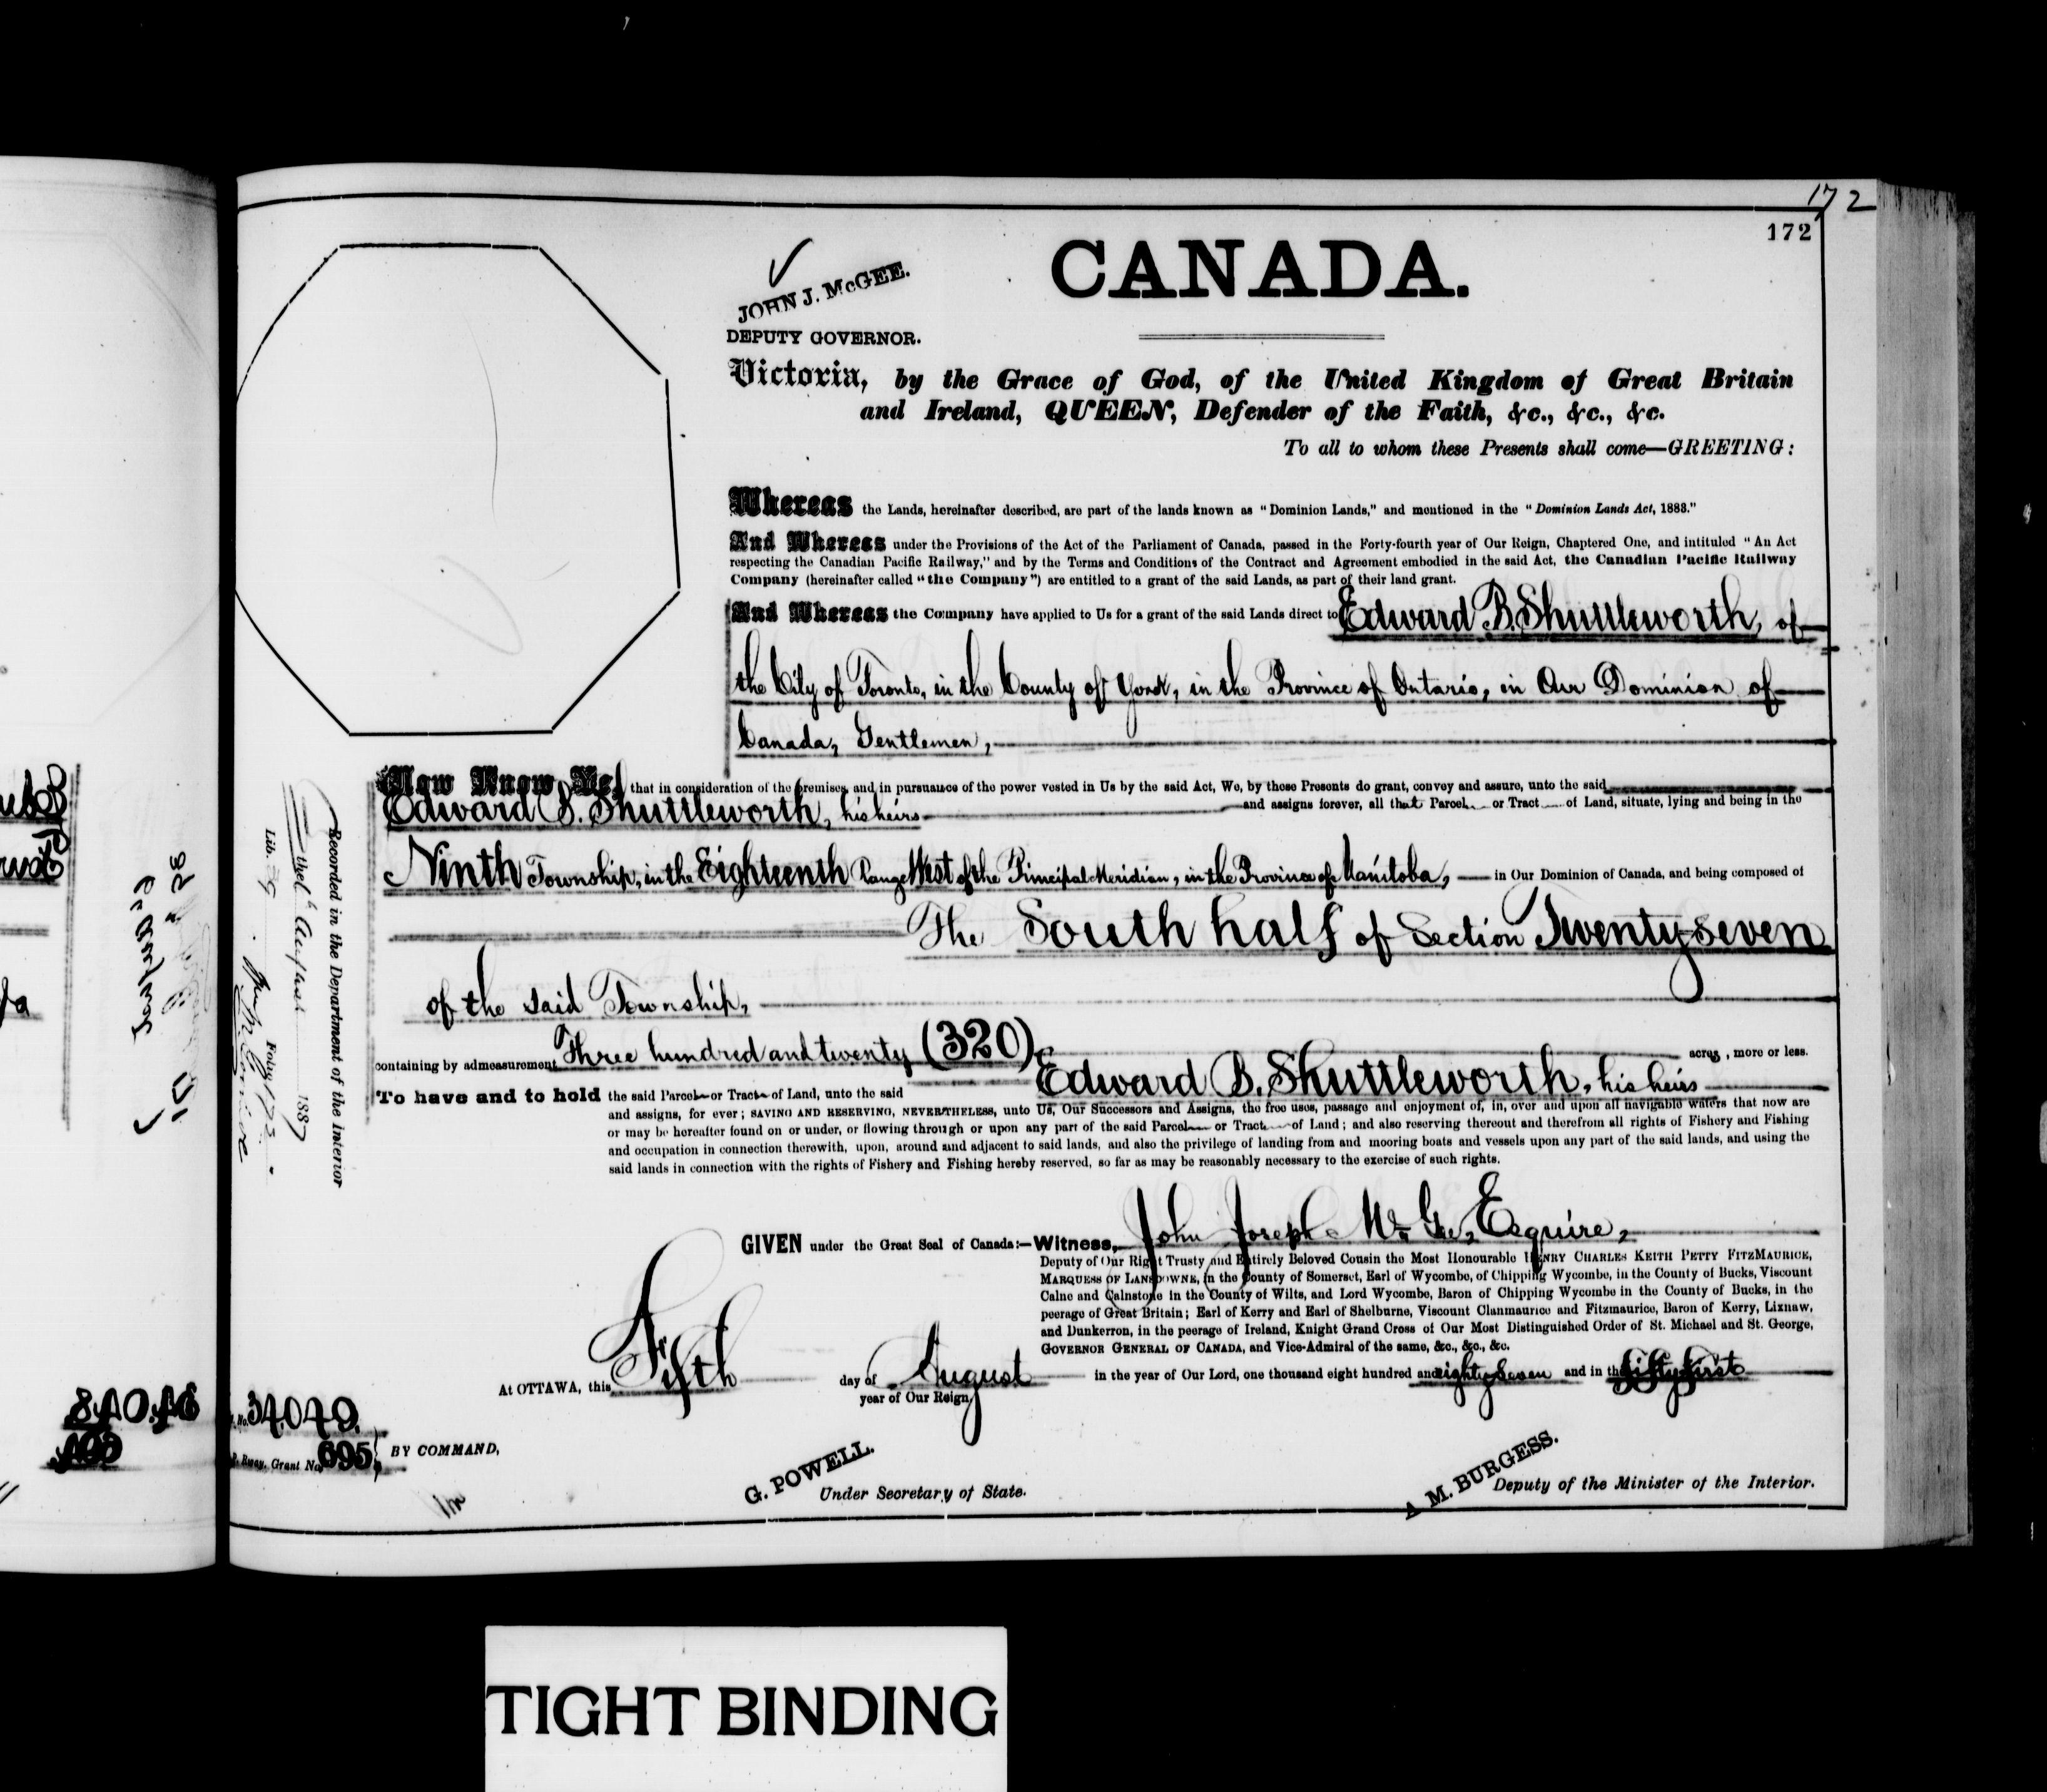 172
172
CANADA.
JOHN J. McGEE.
DEPUTY GOVERNOR.
Victoria, by the Grace of God, of the United Kingdom of Great Britain
and Ireland, QUEEN, Defender of the Faith, &c., &c., &c.
To all to whom these Presents shall come—GREETING:
Whereas the Lands, hereinafter described, are part of the lands known as "Dominion Lands," and mentioned in the "Dominion Lands Act, 1883."
And Whereas under the Provisions of the Act of the Parliament of Canada, passed in the Forty-fourth year of Our Reign, Chaptered One, and intituled "An Act
respecting the Canadian Pacific Railway," and by the Terms and Conditions of the Contract and Agreement embodied in the said Act, the Canadian Pacific Railway
Company (hereinafter called "the Company") are entitled to a grant of the said Lands, as part of their land grant.
And Whereas the Company have applied to Us for a grant of the said Lands direct to Edward B. Shuttleworth, of
the City of Toronto, in the County of York, in the Province of Ontario, in Our Dominion of
Canada, Gentlemen,
Now Know Ye, that in consideration of the premises, and in pursuance of the power vested in Us by the said Act, We, by these Presents do grant, convey and assure, unto the said
Edward B. Shuttleworth, his heirs and assigns forever, all that Parcel or Tract of Land, situate, lying and being in the
Ninth Township, in the Eighteenth Range West of the Principal Meridian, in the Province of Manitoba, in Our Dominion of Canada, and being composed of
The South half of Section Twenty-seven
of the said Township,
containing by admeasurement Three hundred and twenty (320) acres, more or less.
To have and to hold the said Parcel or Tract of Land, unto the said Edward B. Shuttleworth, his heirs
and assigns, for ever; SAVING AND RESERVING, NEVERTHELESS, unto Us, Our Successors and Assigns, the free uses, passage and enjoyment of, in, over and upon all navigable waters that now are
or may be hereafter found on or under, or flowing through or upon any part of the said Parcel or Tract of Land; and also reserving thereout and therefrom all rights of Fishery and Fishing
and occupation in connection therewith, upon, around and adjacent to said lands, and also the privilege of landing from and mooring boats and vessels upon any part of the said lands, and using the
said lands in connection with the rights of Fishery and Fishing hereby reserved, so far as may be reasonably necessary to the exercise of such rights.
GIVEN under the Great Seal of Canada:—Witness, John Joseph McGee, Esquire,
Deputy of Our Right Trusty and Entirely Beloved Cousin the Most Honourable HENRY CHARLES KEITH PETTY FITZMAURICE,
MARQUESS OF LANSDOWNE, in the County of Somerset, Earl of Wycombe, of Chipping Wycombe, in the County of Bucks, Viscount
Calne and Calnstone in the County of Wilts, and Lord Wycombe, Baron of Chipping Wycombe in the County of Bucks, in the
peerage of Great Britain; Earl of Kerry and Earl of Shelburne, Viscount Clanmaurice and Fitzmaurice, Baron of Kerry, Lixnaw,
and Dunkerron, in the peerage of Ireland, Knight Grand Cross of Our Most Distinguished Order of St. Michael and St. George,
GOVERNOR GENERAL OF CANADA, and Vice-Admiral of the same, &c., &c., &c.
At OTTAWA, this Fifth day of August in the year of Our Lord, one thousand eight hundred and eighty seven and in the fifty first
year of Our Reign.
No. 34049.
Rway. Grant No. 695
BY COMMAND,
G. POWELL.
Under Secretary of State.
A. M. BURGESS.
Deputy of the Minister of the Interior.
Recorded in the Department of the Interior
August 1887
Lib. 39 Folio 172
TIGHT BINDING